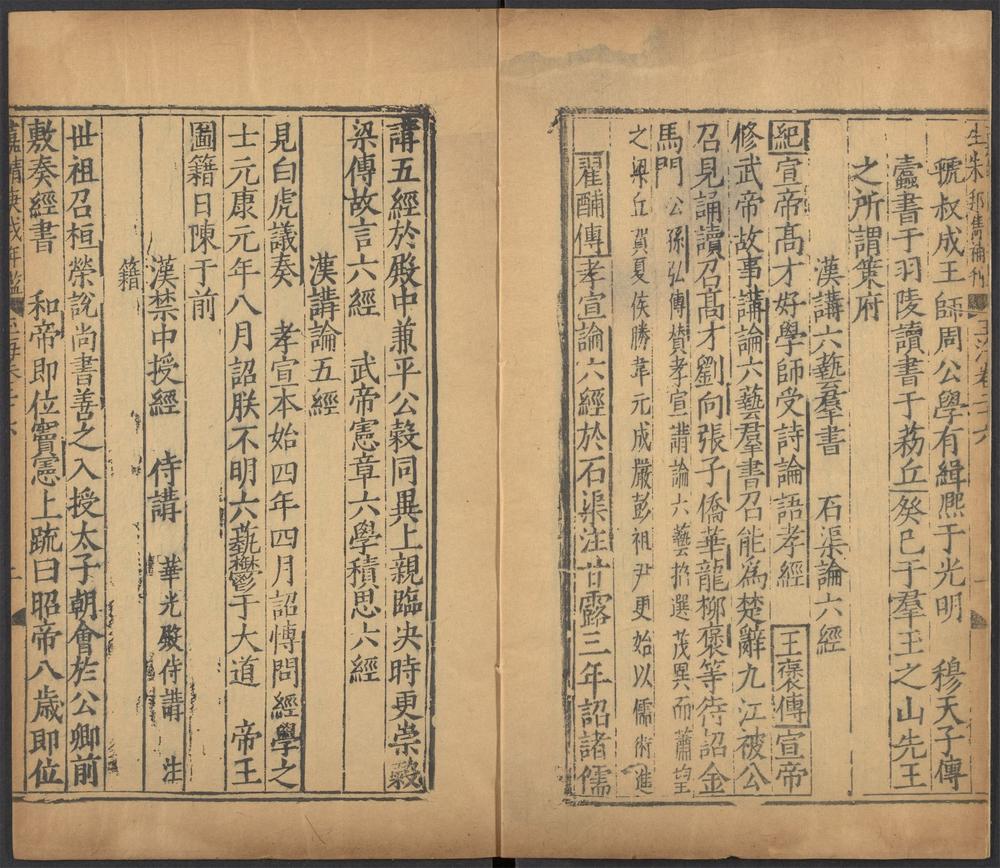 生朱邦儁補刊
虢叔成王師周公學有緝熙于光明　穆天子傳
蠹書于羽陵讀書于菞丘癸巳于羣玉之山先王
之所謂策府
漢講六藝羣書　石渠論六經
紀宣帝高才好學師受詩論語孝經　王褒傳宣帝
修武帝故事講論六藝羣書召能爲楚辭九江被公
召見誦讀召高才劉向張子僑華龍柳褒等待詔金
馬門公孫弘傳贊孝宣講論六藝招選茂異而蕭望
之梁丘賀夏侯勝韋元成嚴彭祖尹更始以儒術進
翟酺傳孝宣論六經於石渠注甘露三年詔諸儒
講五經於殿中兼平公穀同異上親臨決時更崇穀
梁傳故言六經　武帝憲章六學積思六經
漢講論五經
見白虎議奏　孝宣本始四年四月詔愽問經學之
士元康元年八月詔朕不明六藝鬱于大道　帝王
圖籍日陳于前
漢禁中授經　侍講　華光殿侍講　注
籍
世祖召桓榮說尚書善之入授太子朝會於公卿前
敷奏經書　和帝即位竇憲上疏曰昭帝八歲即位